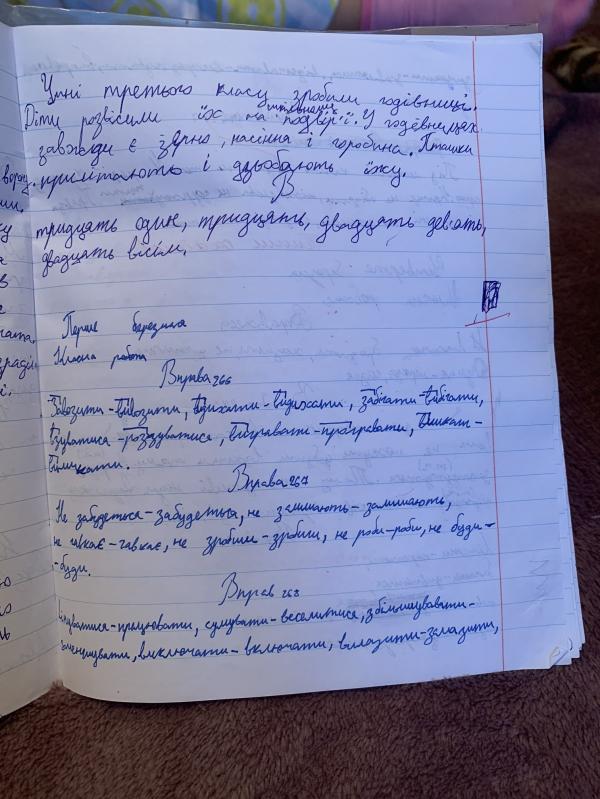 Учні третього класу зробили годівниці.
Діти розвісили їх на шкільному подвір'ї. У годівницях
завжди є зерно, насіння і горобина. Пташки
прилітають і дзьобають їжу.
В
тридцять один, тридцять, двадцять дев'ять,
двадцять вісім.
Перше березня
Класна робота
Вправа 266
Завозити - вивозити, вдихати - видихати, забігати - вибігати,
взуватися - роззуватися, вигравати - програвати,
Вправа 267
Не забудеться - забудеться, не залишають - залишають,
не гавкає - гавкає, не зробили - зробили, не роби - роби, не буди -
- буди.
Вправ 268
працювати, сумувати - веселитися, збільшувати -
зменшувати, виключати - включати, вилазити - залазити,